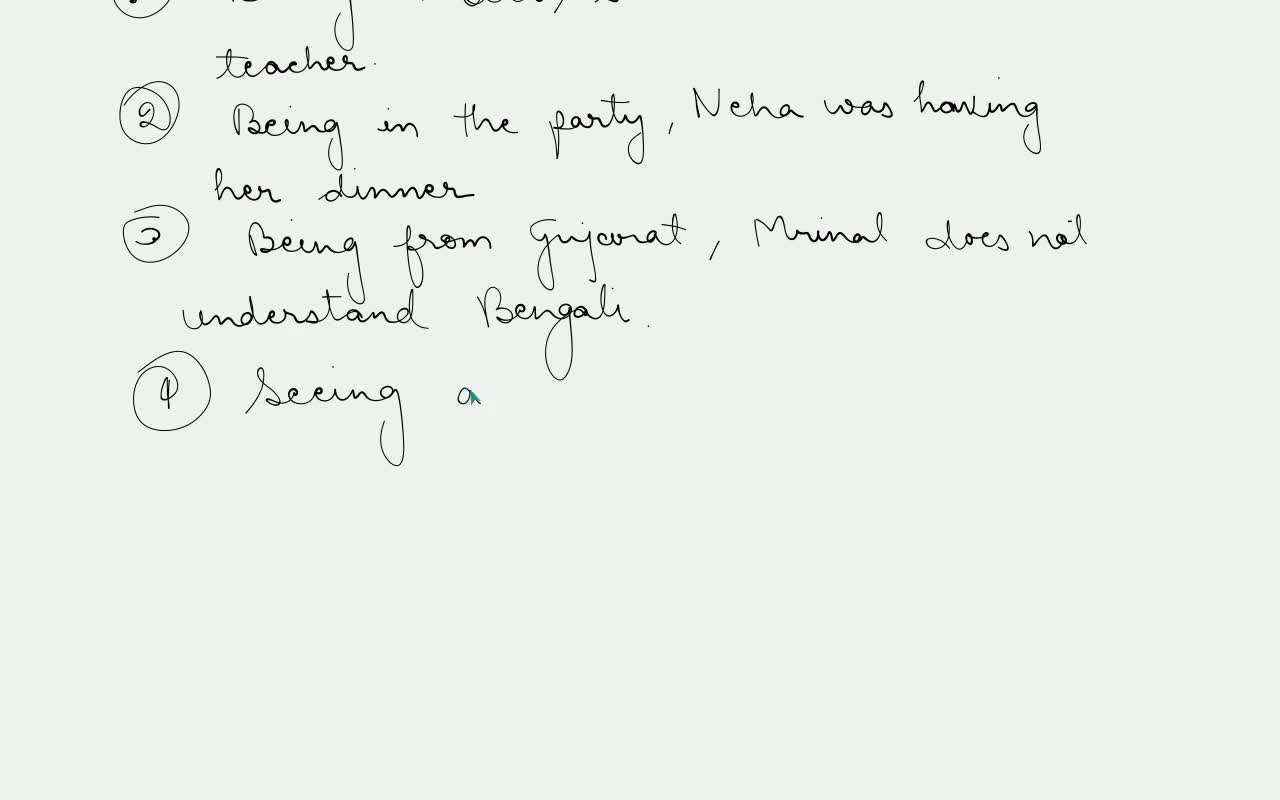 Being
teacher.
② Being in the party, Neha was having
her dinner
③ Being from Gujarat, Mrinal does not
understand Bengali.
④ Seeing a